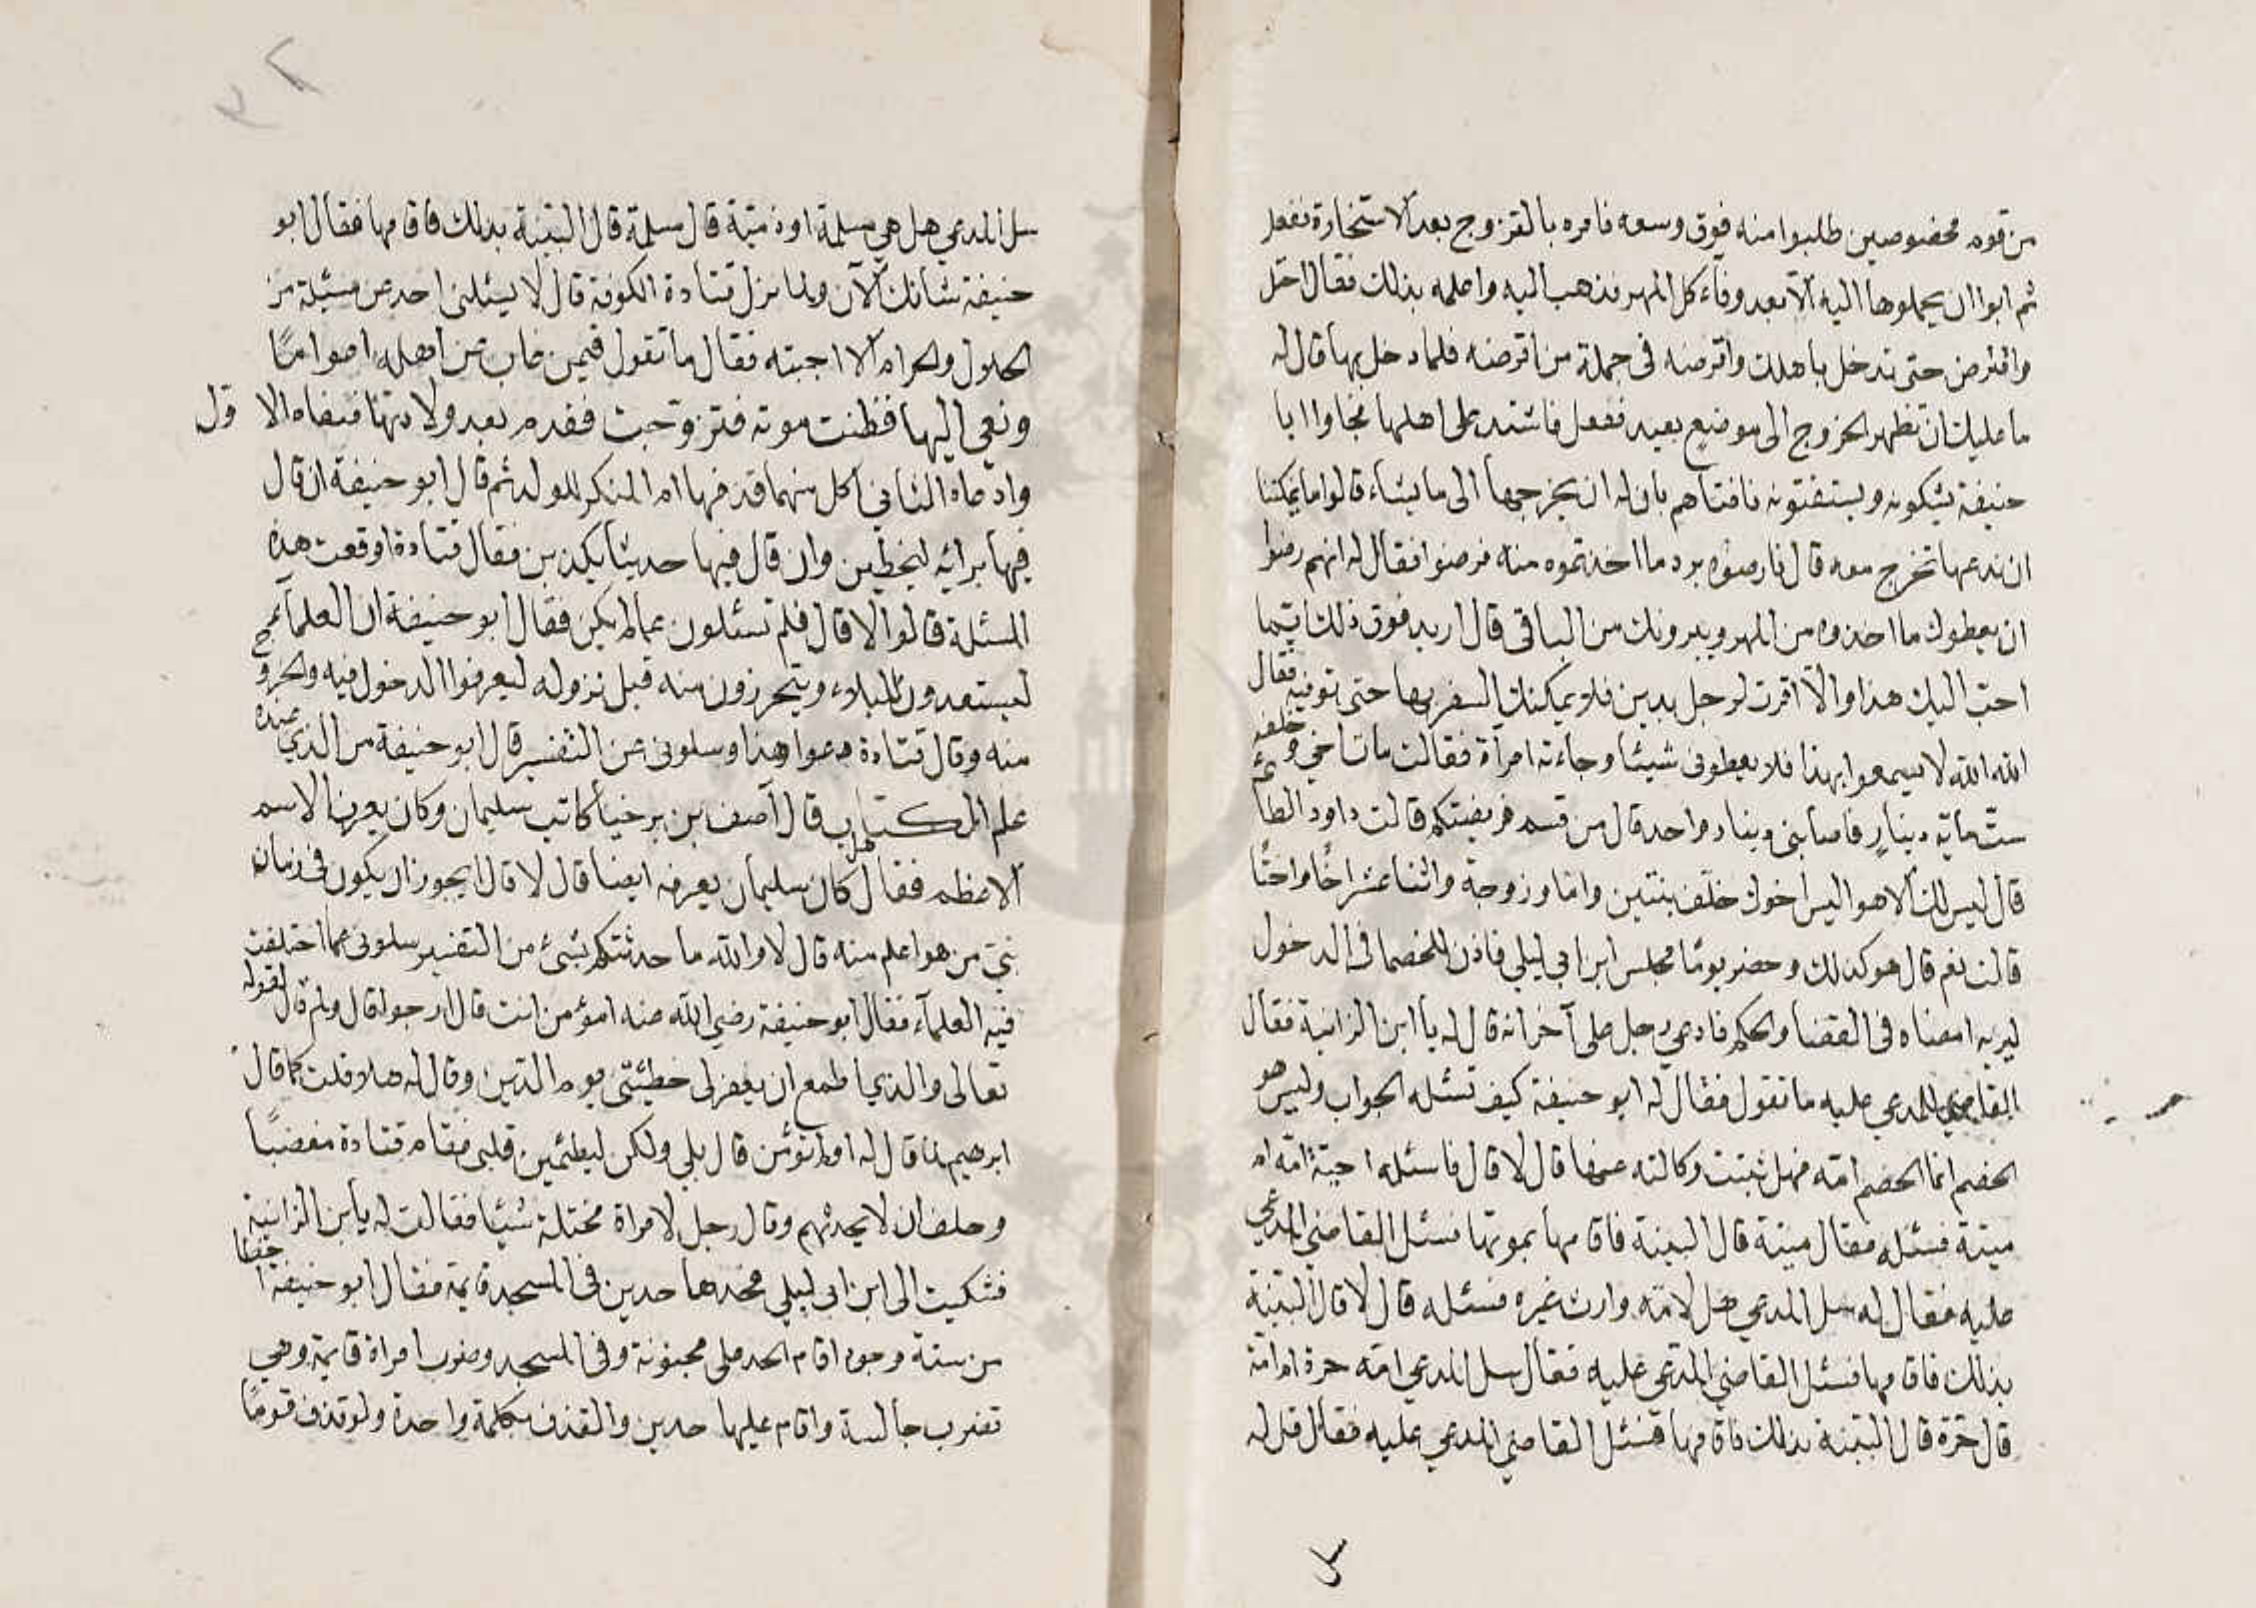 من قوم مخصوصين طلبوا منه فوق وسعه فامره بالتزوج بعد الاستخارة ففعل
ثم ابوا ان يحملوها اليه الا بعد وفاء كل المهر فذهب اليه واعلمه بذلك فقال احتل
واقترض حتى تدخل باهلك واقرضه فى جملة من اقرضه فلما دخل بها قال له
ما عليك ان تظهر الخروج الى موضع بعيد ففعل فاشتد على اهلها فجاؤا ابا
حنيفة يشكونه ويستفتونه فافتاهم بان له ان يخرجها الى ما يشاء قالوا ما يمكننا
ان ندعها تخرج معه قال فارضوه برد ما اخذتموه منه فرضوا فقال له انهم رضوا
ان يعطوك ما اخذوه من المهر ويبرونك من الباقى قال اريد فوق ذلك
احب اليك هذا والا اقرت لرجل بدين فلا يمكنك السفر بها حتى توفيه فقال
الله الله لا يسمعوا بهذا فلا يعطونى شيئا وجاءته امرأة فقالت مات اخي وخلف
ست ماية دينار فاصابنى دينار واحد قال من قسم فريضتكم قالت داود الطائي
قال ليس لك الا هو اليس اخوك خلف بنتين واما وزوجة واثنا عشر اخا واختا
قالت نعم قال هو كذلك وحضر يوما مجلس ابن ابي ليلى فاذن للخصما فى الدخول
ليريه امضاه فى القضا والحكم فادعي رجل على آخر انه قال له يا ابن الزانية فقال
القاضي للمدعي عليه ما تقول فقال له ابو حنيفة كيف تسئله الجواب وليس هو
الخصم انما الخصم امه فهل ثبتت وكالته عنها قال لا قال فاسئله احية امه ام
ميتة فسئله فقال ميتة قال البينة فاقامها بموتها فسئل القاضي المدعي
عليه فقال له سل المدعي هل لامه وارث غيره فسئله قال لا قال البينة
بذلك فاقامها فسئل القاضي المدعي عليه فقال سل المدعي امه حرة او امة
قال حرة قال البينة بذلك فاقامها فسئل القاضي المدعي عليه فقال قل له
سل
سل المدعي هل هي مسلمة او ذمية قال مسلمة قال البينة بذلك فاقامها فقال ابو
حنيفة شانك الآن ولما نزل قتادة الكوفة قال لا يسئلنى احد عن مسئلة من
الحلال والحرام الا اجبته فقال ما تقول فيمن غاب عن اهله اعواما
ونعي اليها فظنت موته فتزوجت فقدم بعد ولادتها فنفاه الاول
وادعاه الثاني اكل منهما قذفها ام المنكر للولد ثم قال ابو حنيفة ان قال
فيها برائه ليخطين وان قال فيها حديثا يكذبن فقال قتادة اوقعت هذه
المسئلة قالوا لا قال فلم تسئلون عما لم يكن فقال ابو حنيفة ان العلمآء
ليستعدون للبلاء ويتحرزون منه قبل نزوله ليعرفوا الدخول فيه والخروج
منه وقال قتادة دعوا هذا وسلونى عن التفسير قال ابو حنيفة من الذي عنده
علم الكتاب قال آصف بن برخيا كاتب سليمان وكان يعرف الاسم
الاعظم فقال هل كان سليمان يعرفه ايضا قال لا قال ايجوز ان يكون فى زمان
نبي من هو اعلم منه قال لا والله ما حدثتكم بشئ من التفسير سلونى عما اختلفت
فيه العلمآء فقال ابو حنيفة رضي الله عنه امؤمن انت قال ارجوا قال ولم قال لقوله
تعالى والذي اطمع ان يغفر لى خطيئتى يوم الدين وقال له هلا قلت كما قال
ابرهيم لما قال له اولم تؤمن قال بلى ولكن ليطمئن قلبى فقام قتادة مغضبا
وحلف ان لا يحدثهم وقال رجل لامراة مختلة شيئا فقالت له يا بن الزانية
فشكيت الى ابن ابى ليلى فحدها حدين فى المسجد قايمة فقال ابو حنيفة اخطا
من ستة وجوه اقام الحد على مجنونة وفى المسجد وضرب امراة قايمة وهي
تضرب جالسة واقام عليها حدين والقذف بكلمة واحدة ولو قذف قوما